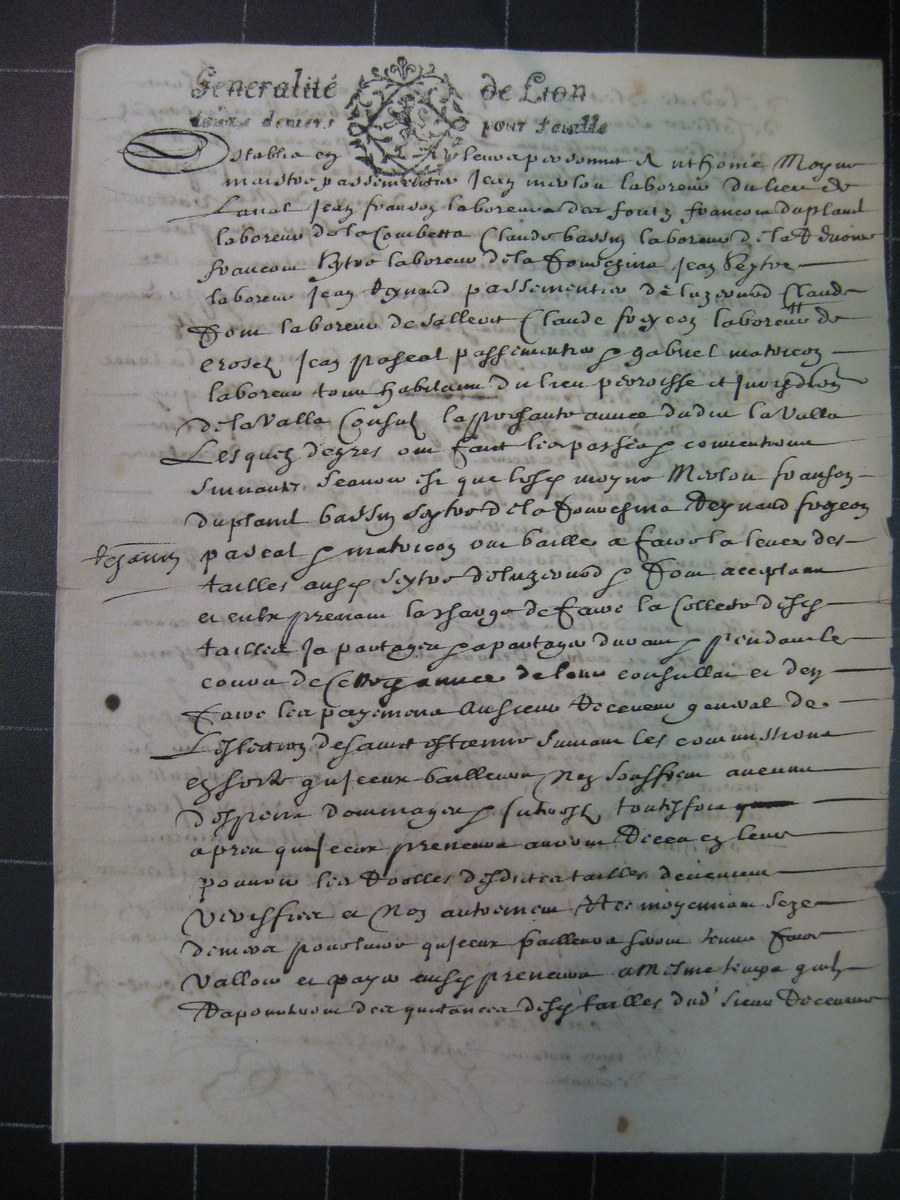 Generalité de Lion
douze deniers pour feuille
Establis en leurs personnes Anthoine Moyne
maistre passementier Jean merlou laboreur du lieu de
Laval Jean franson laboreur des fontz francois duplanil
laboreur de la Combetta Claude bassin laboreur de la
francois seytre laboreur de la Jean seytre
laboreur Jean Reynaud passementier de luzernod Claude
Dom laboreur de Salleort Claude laboreur de
crosel Jean pascal passementier & gabriel matricon
laboreur tous habitans du lieu perroisse et jurisdiction
de la Valla Consulz la presante annee dudit la Valla
Lesquelz degres ont faict les passes & conventions
suivantes scavoir est que lesdits moyne Merlou franson
duplanil bassin seytre de la Reynaud
pascal & matricon ont baille a faire la levee des
tailles ausdits seytre de luzernod & Dom acceptans
et entreprenans la charge de faire la Collecte desdites
tailles ja partagees & a partager durant & pendant le
cours de cette annee de leur consullat et den
faire les payemens au sieur Receveur general de
Leslection de saint estienne suivant les commissions
en sorte qujceux bailleurs nen souffrent aucuns
despens dommages & interestz toutesfois
apres qujceux preneurs auront Receu en leur
pouvoir les Roolles desdites tailles deuement
veriffies et non autrement et moyennant seze
deniers pour livre qujceux bailleurs seront tenus faire
valloir et payer ausdits preneurs a mesme temps quilz
Raporteront des quitances desdites tailles dud' sieur Receveur